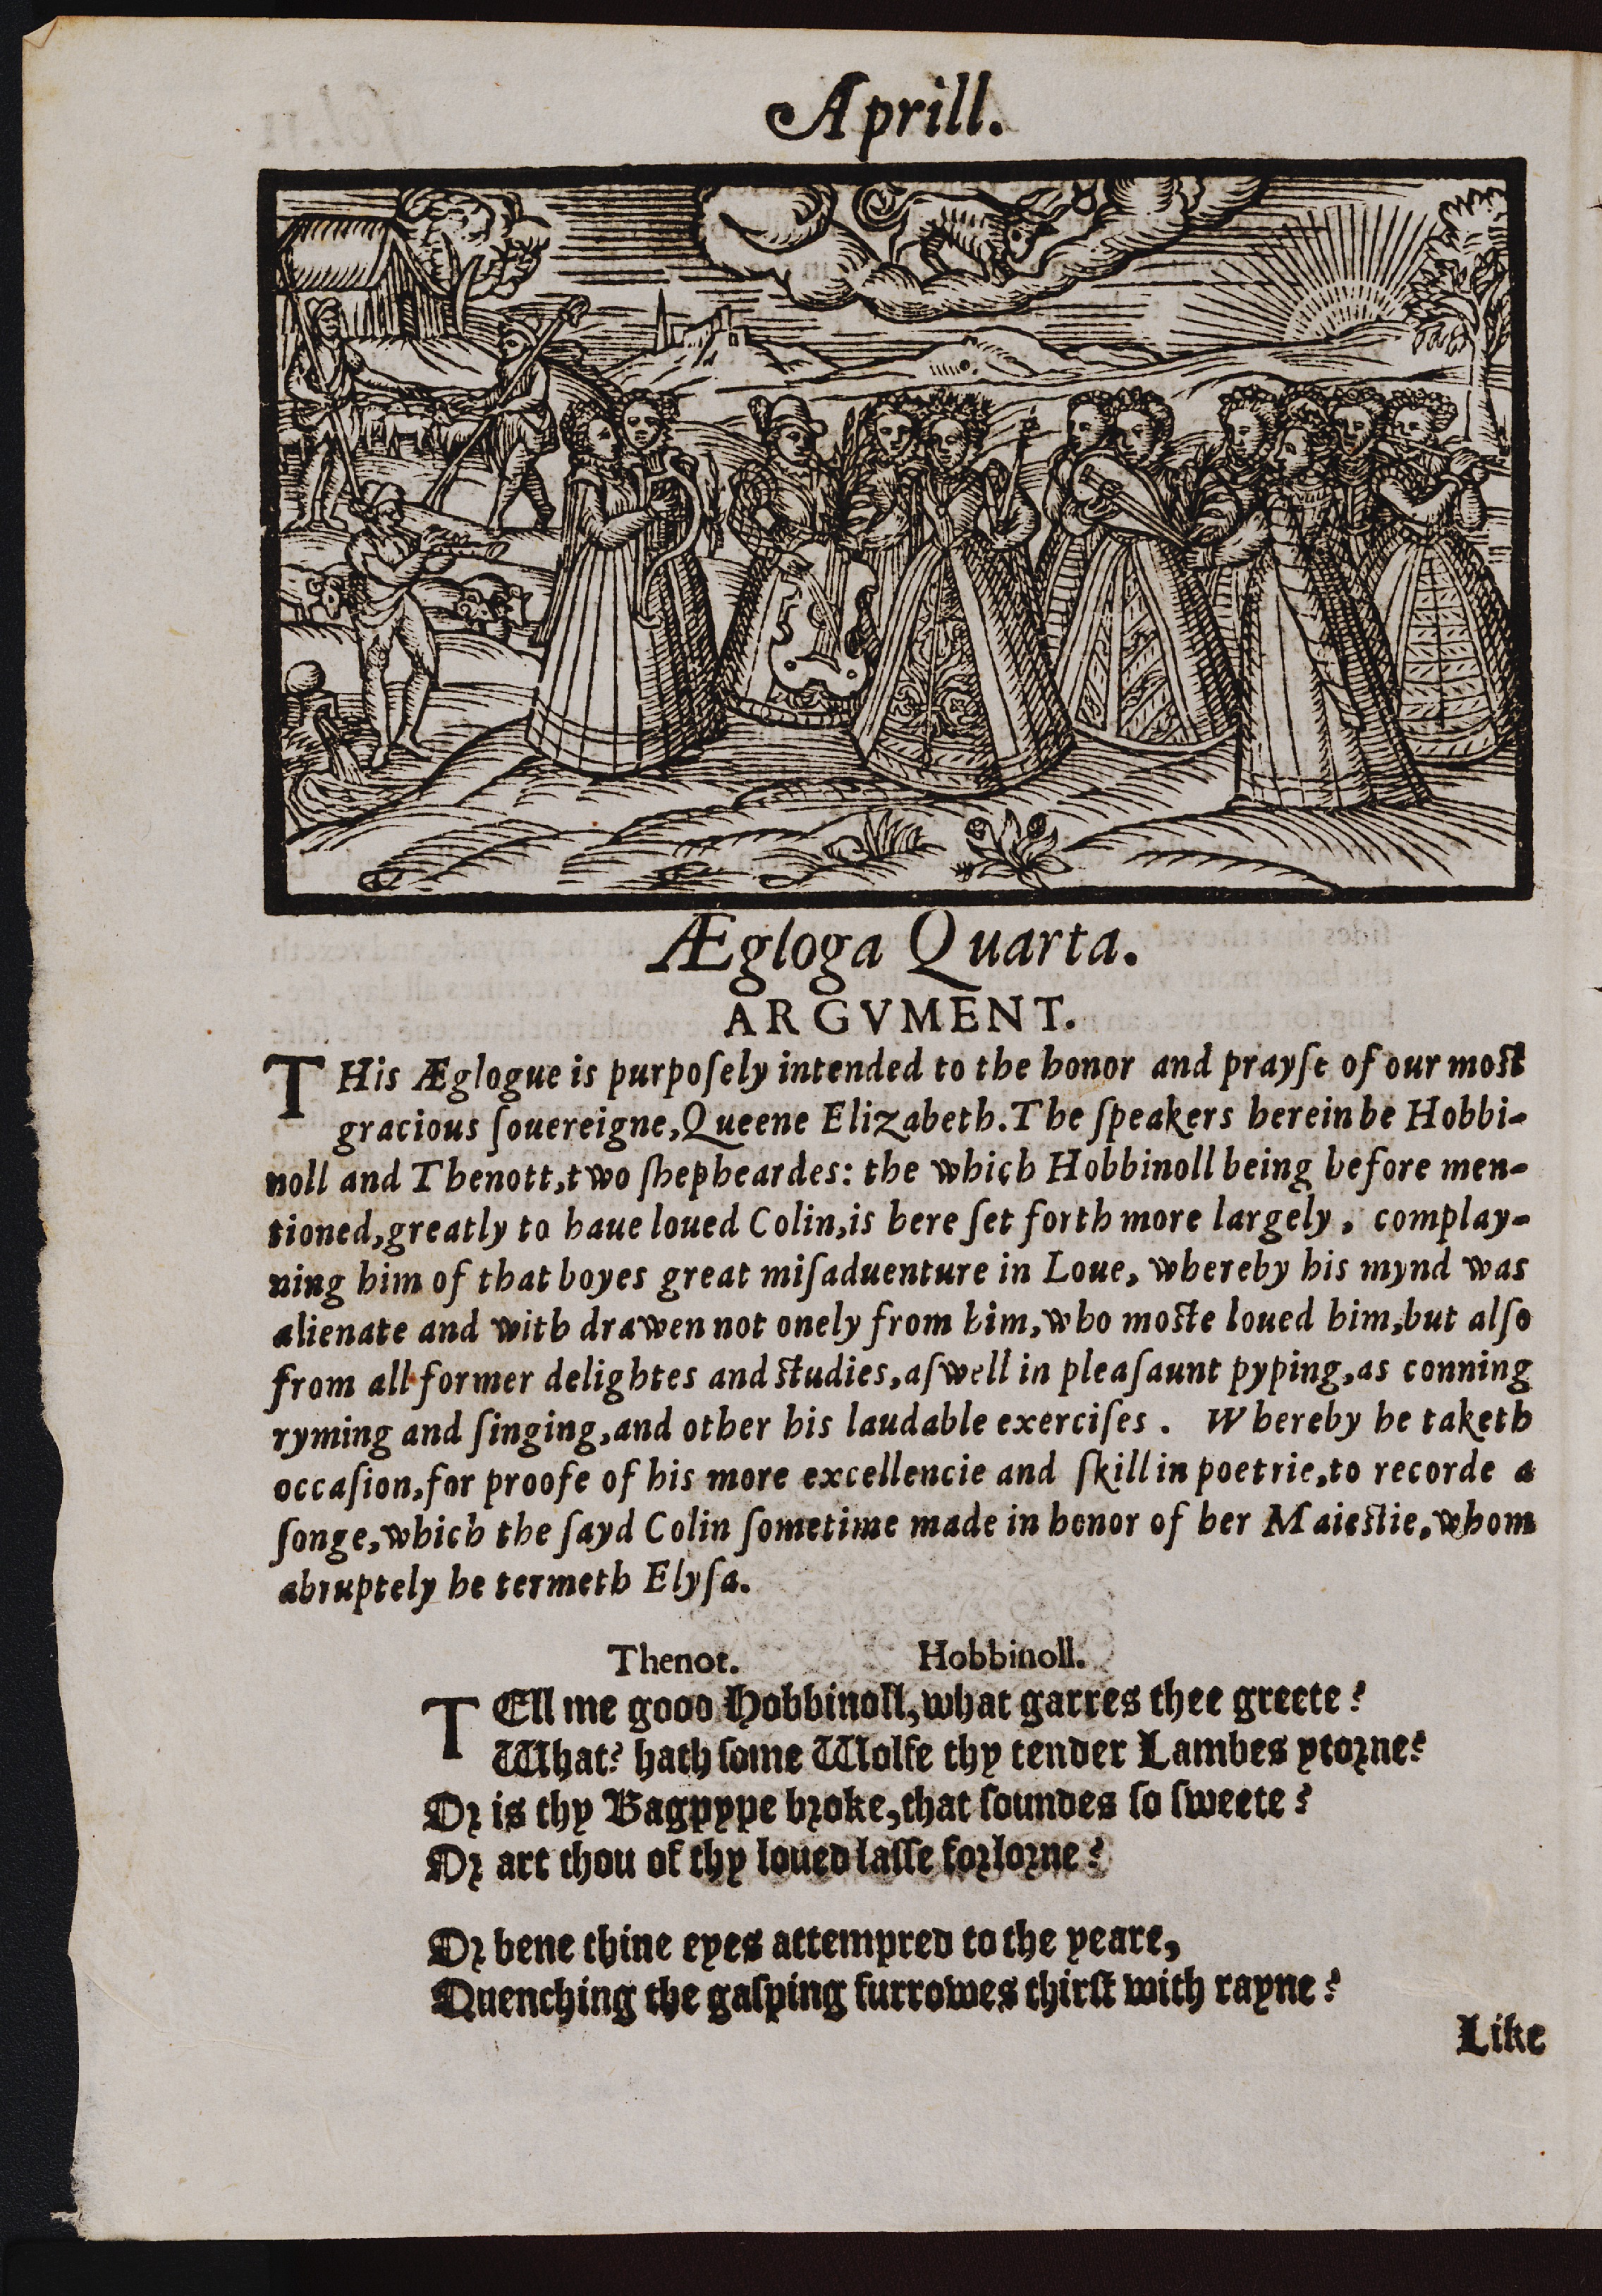 Aprill.
Ægloga Quarta.
ARGVMENT.
THis Æglogue is purpoſely intended to the honor and prayſe of our moſt
gracious ſouereigne, Queene Elizabeth. The ſpeakers herein be Hobbi-
noll and Thenott, two ſhepheardes: the which Hobbinoll being before men-
tioned, greatly to haue loued Colin, is here ſet forth more largely, complay-
ning him of that boyes great miſaduenture in Loue, whereby his mynd was
alienate and with drawen not onely from him, who moſte loued him, but alſo
from all former delightes and ſtudies, aſwell in pleaſaunt pyping, as conning
ryming and ſinging, and other his laudable exerciſes. Whereby he taketh
occaſion, for proofe of his more excellencie and ſkill in poetrie, to recorde a
ſonge, which the ſayd Colin ſometime made in honor of her Maieſtie, whom
abruptely he termeth Elyſa.
Thenot. Hobbinoll.
TEll me good Hobbinoll, what garres thee greete?
What? hath ſome Wolfe thy tender Lambes ytorne?
Or is thy Bagpype broke, that ſoundes ſo ſweete?
Or art thou of thy loued laſſe forlorne?
Or bene thine eyes attempred to the yeare,
Quenching the gaſping furrowes thirſt with rayne?
Like